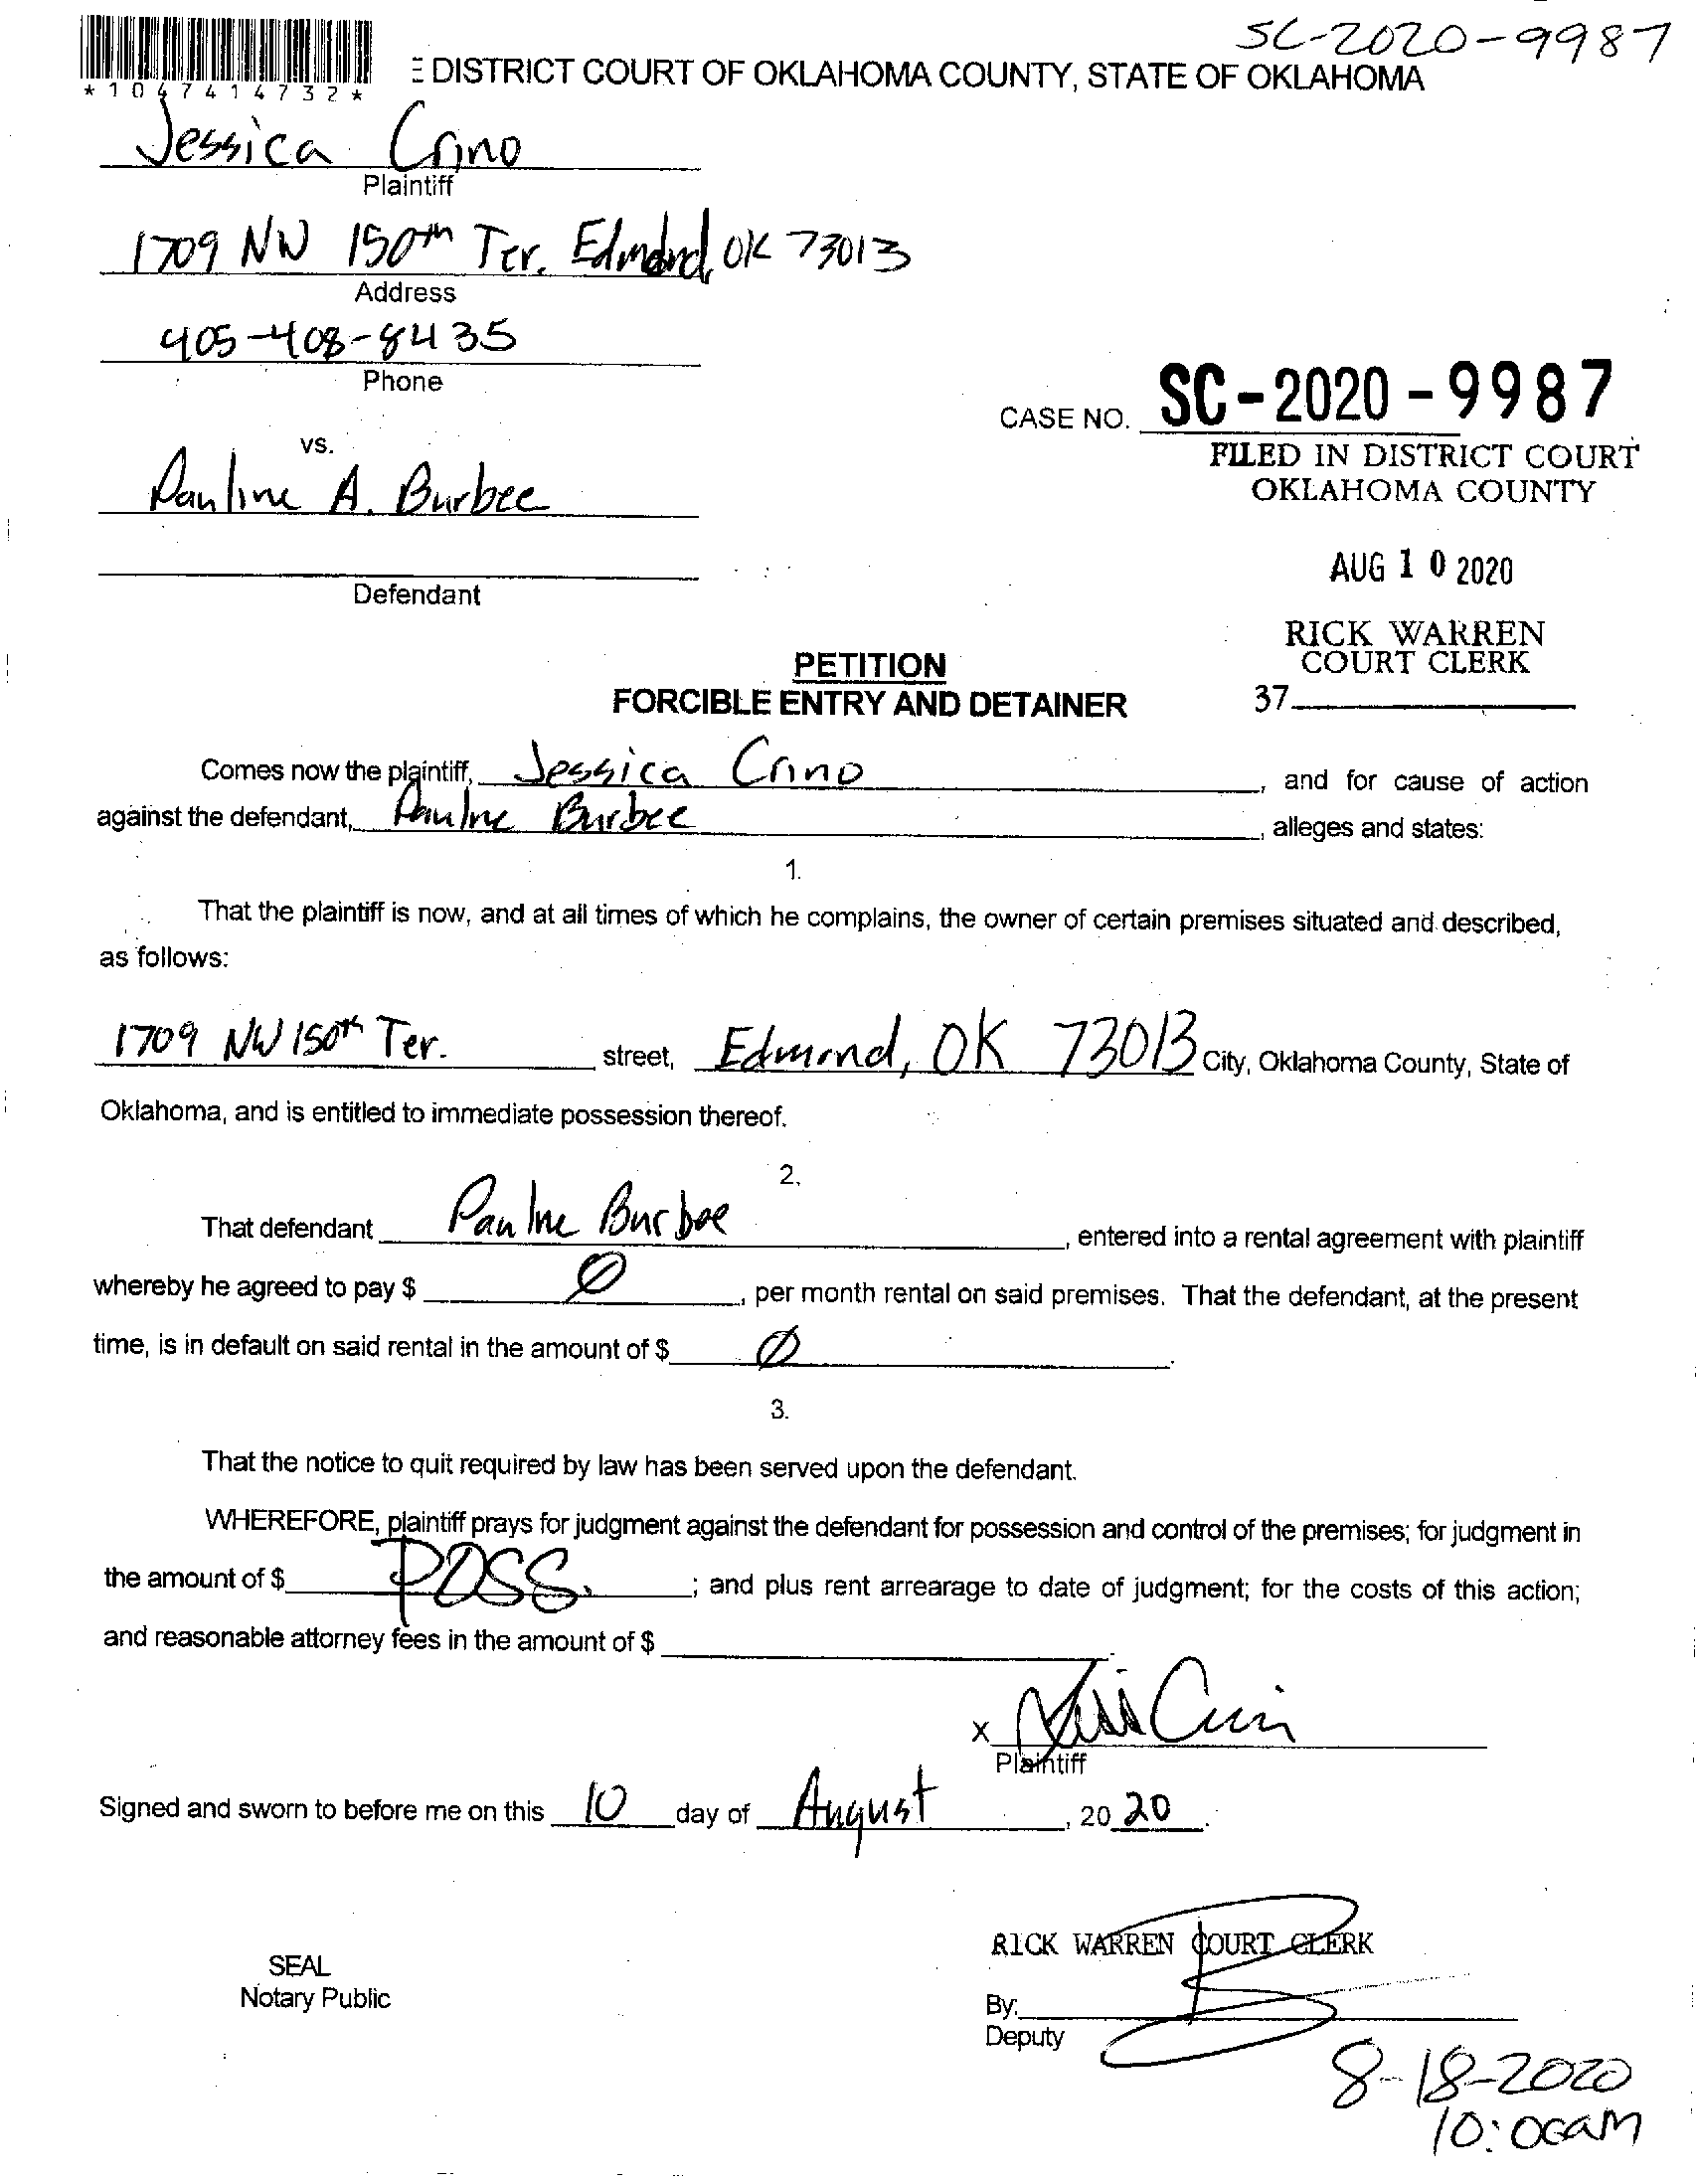 SC-2020-9987
*1047414732*
E DISTRICT COURT OF OKLAHOMA COUNTY, STATE OF OKLAHOMA
Jessica Crino
Plaintiff
1709 NW 150th Ter. Edmond, OK 73013
Address
405-408-8435
Phone
CASE NO. SC-2020-9987
vs.
FILED IN DISTRICT COURT
OKLAHOMA COUNTY
Pauline A. Burbee
AUG 10 2020
Defendant
RICK WARREN
COURT CLERK
37
PETITION
FORCIBLE ENTRY AND DETAINER
Comes now the plaintiff, Jessica Crino, and for cause of action
against the defendant, Pauline Burbee, alleges and states:
1.
That the plaintiff is now, and at all times of which he complains, the owner of certain premises situated and described,
as follows:
1709 NW 150th Ter. street, Edmond, OK 73013 City, Oklahoma County, State of
Oklahoma, and is entitled to immediate possession thereof.
2.
That defendant Pauline Burbee, entered into a rental agreement with plaintiff
whereby he agreed to pay $ Ø, per month rental on said premises. That the defendant, at the present
time, is in default on said rental in the amount of $ Ø.
3.
That the notice to quit required by law has been served upon the defendant.
WHEREFORE, plaintiff prays for judgment against the defendant for possession and control of the premises; for judgment in
the amount of $ POSS.; and plus rent arrearage to date of judgment; for the costs of this action;
and reasonable attorney fees in the amount of $
X
Plaintiff
Signed and sworn to before me on this 10 day of August, 2020.
RICK WARREN COURT CLERK
SEAL
Notary Public
By:
Deputy
8-18-2020
10:00am